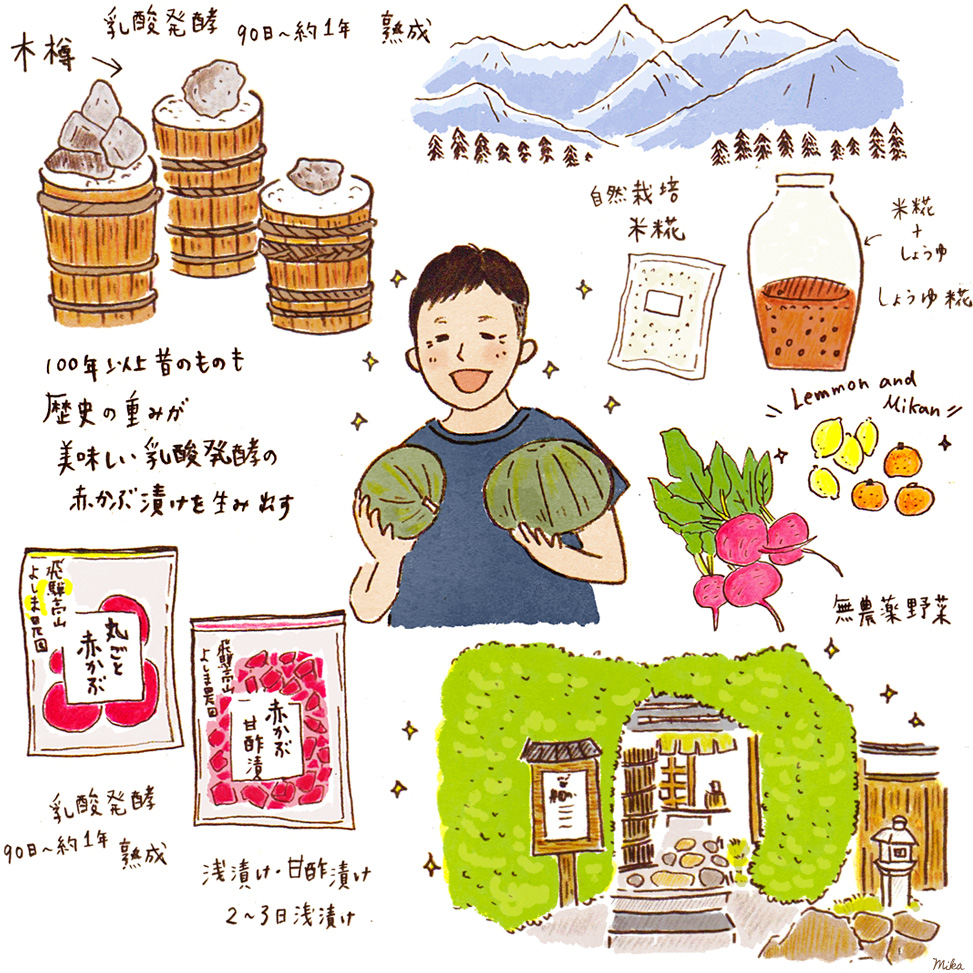 木樽
乳酸発酵
90日〜約1年 熟成
自然栽培
米糀
米糀
+
しょうゆ
しょうゆ糀
100年以上昔のものも
歴史の重みが
美味しい乳酸発酵の
赤かぶ漬けを生み出す
Lemmon and
Mikan
無農薬野菜
飛騨高山
よしま農園
丸ごと
赤かぶ
飛騨高山
よしま農園
赤かぶ
甘酢漬
乳酸発酵
90日〜約1年 熟成
浅漬け・甘酢漬け
2〜3日浅漬け
Mika